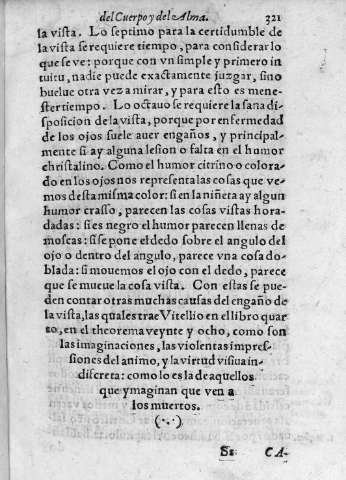 del Cuerpo y del Alma. 321
la vista. Lo septimo para la certidumbre de
la vista se requiere tiempo, para considerar lo
que se ve: porque con vn simple y primero in
tuitu, nadie puede exactamente juzgar, sino
buelue otra vez a mirar, y para esto es menes-
ster tiempo. Lo octauo se requiere la sana di-
sposicion de la vista, porque por enfermedad
de los ojos suele auer engaños, y principal-
mente si ay alguna lesion o falta en el humor
christalino. Como el humor citrino o colora-
do en los ojos nos representa las cosas que ve-
mos desta misma color: si en la niñeta ay algun
humor crasso, parecen las cosas vistas hora-
dadas: si es negro el humor parecen llenas de
moscas: si se pone el dedo sobre el angulo del
ojo o dentro del angulo, parece vna cosa do-
blada: si mouemos el ojo con el dedo, parece
que se mueue la cosa vista. Con estas se pue-
den contar otras muchas causas del engaño de
la vista, las quales trae Vitellio en el libro quar
to, en el theorema veynte y ocho, como son
las imaginaciones, las violentas impres-
siones del animo, y la virtud visiua in-
discreta: como lo es la de aquellos
que ymaginan que ven a
los muertos.
(∵)
Ss CA-